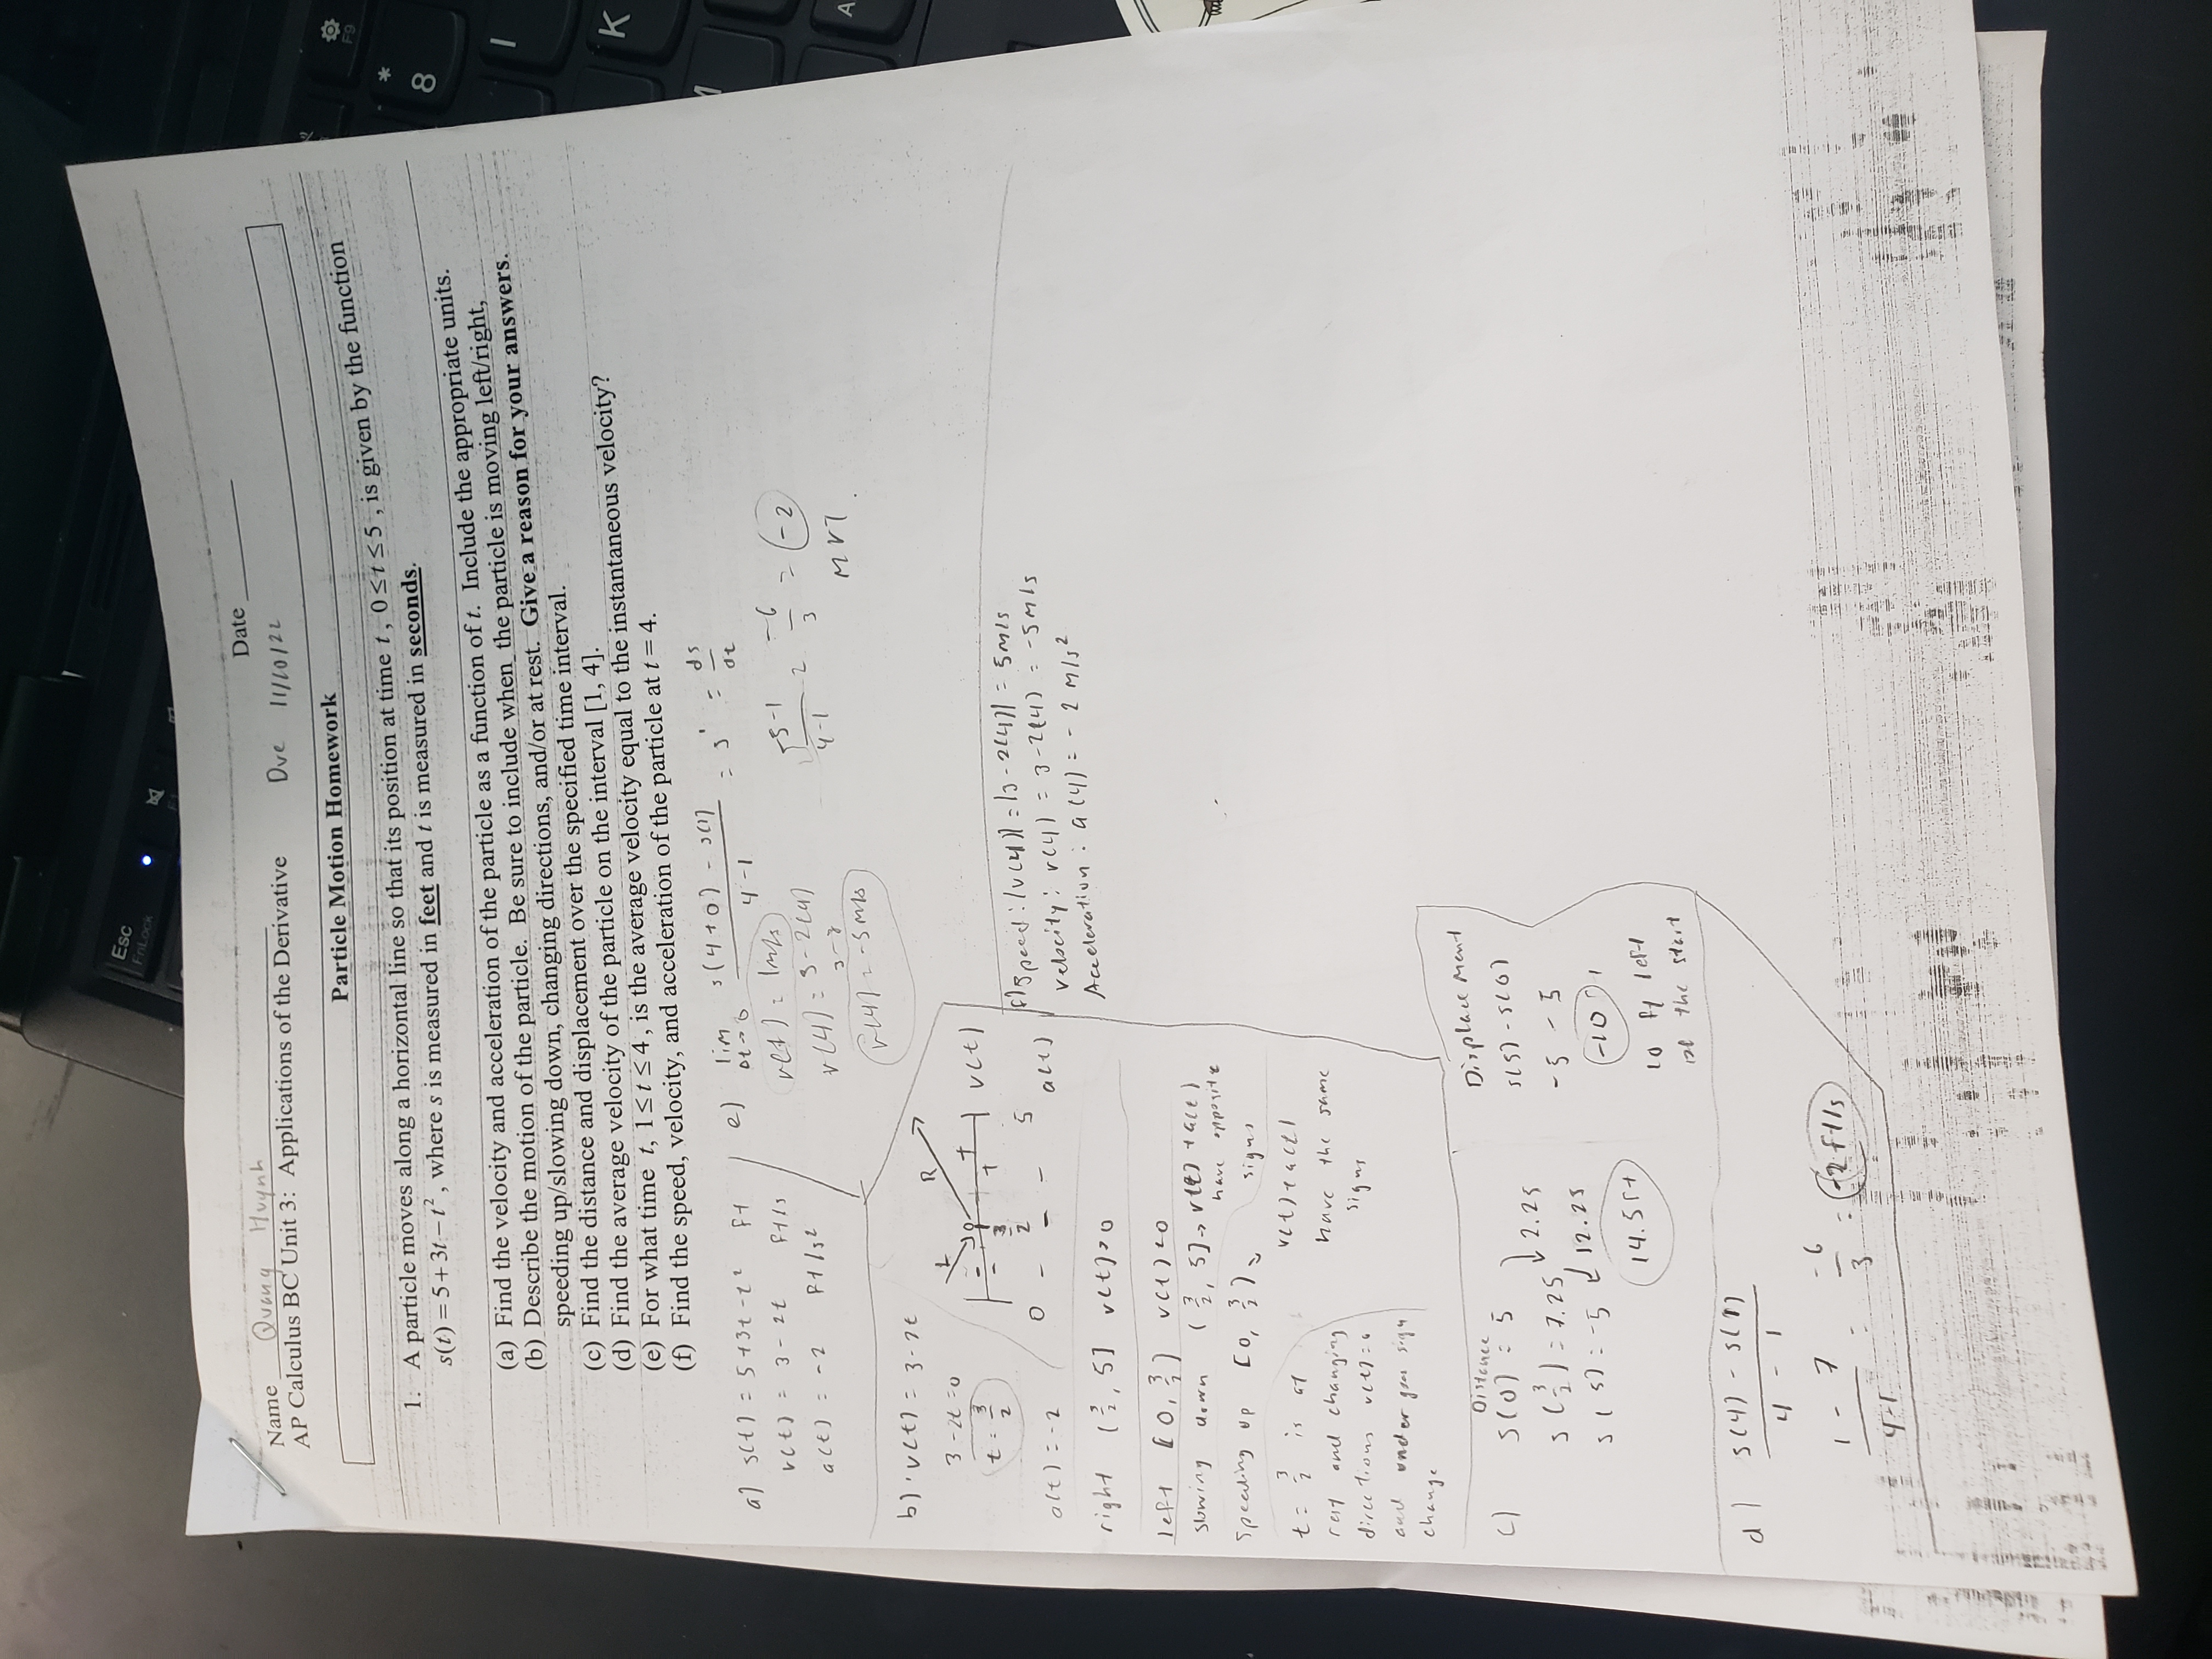 Esc
FnLock
F9
*
8
I
K
A
Name Quang Huynh
Date
AP Calculus BC Unit 3: Applications of the Derivative Due 11/10/22
Particle Motion Homework
1. A particle moves along a horizontal line so that its position at time t, 0≤t≤5, is given by the function
s(t) = 5+3t-t², where s is measured in feet and t is measured in seconds.
(a) Find the velocity and acceleration of the particle as a function of t. Include the appropriate units.
(b) Describe the motion of the particle. Be sure to include when the particle is moving left/right,
speeding up/slowing down, changing directions, and/or at rest. Give a reason for your answers.
(c) Find the distance and displacement over the specified time interval.
(d) Find the average velocity of the particle on the interval [1, 4].
(e) For what time t, 1≤t≤4, is the average velocity equal to the instantaneous velocity?
(f) Find the speed, velocity, and acceleration of the particle at t = 4.
a) s(t) = 5+3t-t² ft
v(t) = 3-2t ft/s
a(t) = -2 ft/s²
e) lim Δt→0 s(4+0) - s(1) / 4-1 = s' = ds/dt
v(t) = 1m/s
v(4) = 3-2(4)
3-8
v(4) = -5m/s
-5-1 / 4-1 = -6/3 = -2
MVT.
b) v(t) = 3-2t
3-2t=0
t = 3/2
a(t) = -2
L R
- 0 + v(t)
- +
0 3/2 5
- - - a(t)
right (3/2, 5] v(t)>0
left [0, 3/2) v(t)<0
slowing down (3/2, 5] → v(t) + a(t)
have opposite
signs
speeding up [0, 3/2)
v(t) + a(t)
have the same
signs
t = 3/2 is at
rest and changing
directions v(t)=0
and under goes sign
change
f) Speed: |v(4)| = |3-2(4)| = 5m/s
velocity: v(4) = 3-2(4) = -5m/s
Acceleration: a(4) = -2 m/s²
c) Distance
s(0) = 5
2.25
s(3/2) = 7.25
12.25
s(5) = -5
14.5ft
Displacement
s(5) - s(0)
-5 - 5
-10
10 ft left
of the start
d) s(4) - s(1) / 4 - 1
1 - 7 / 4-1 = -6/3 = -2ft/s